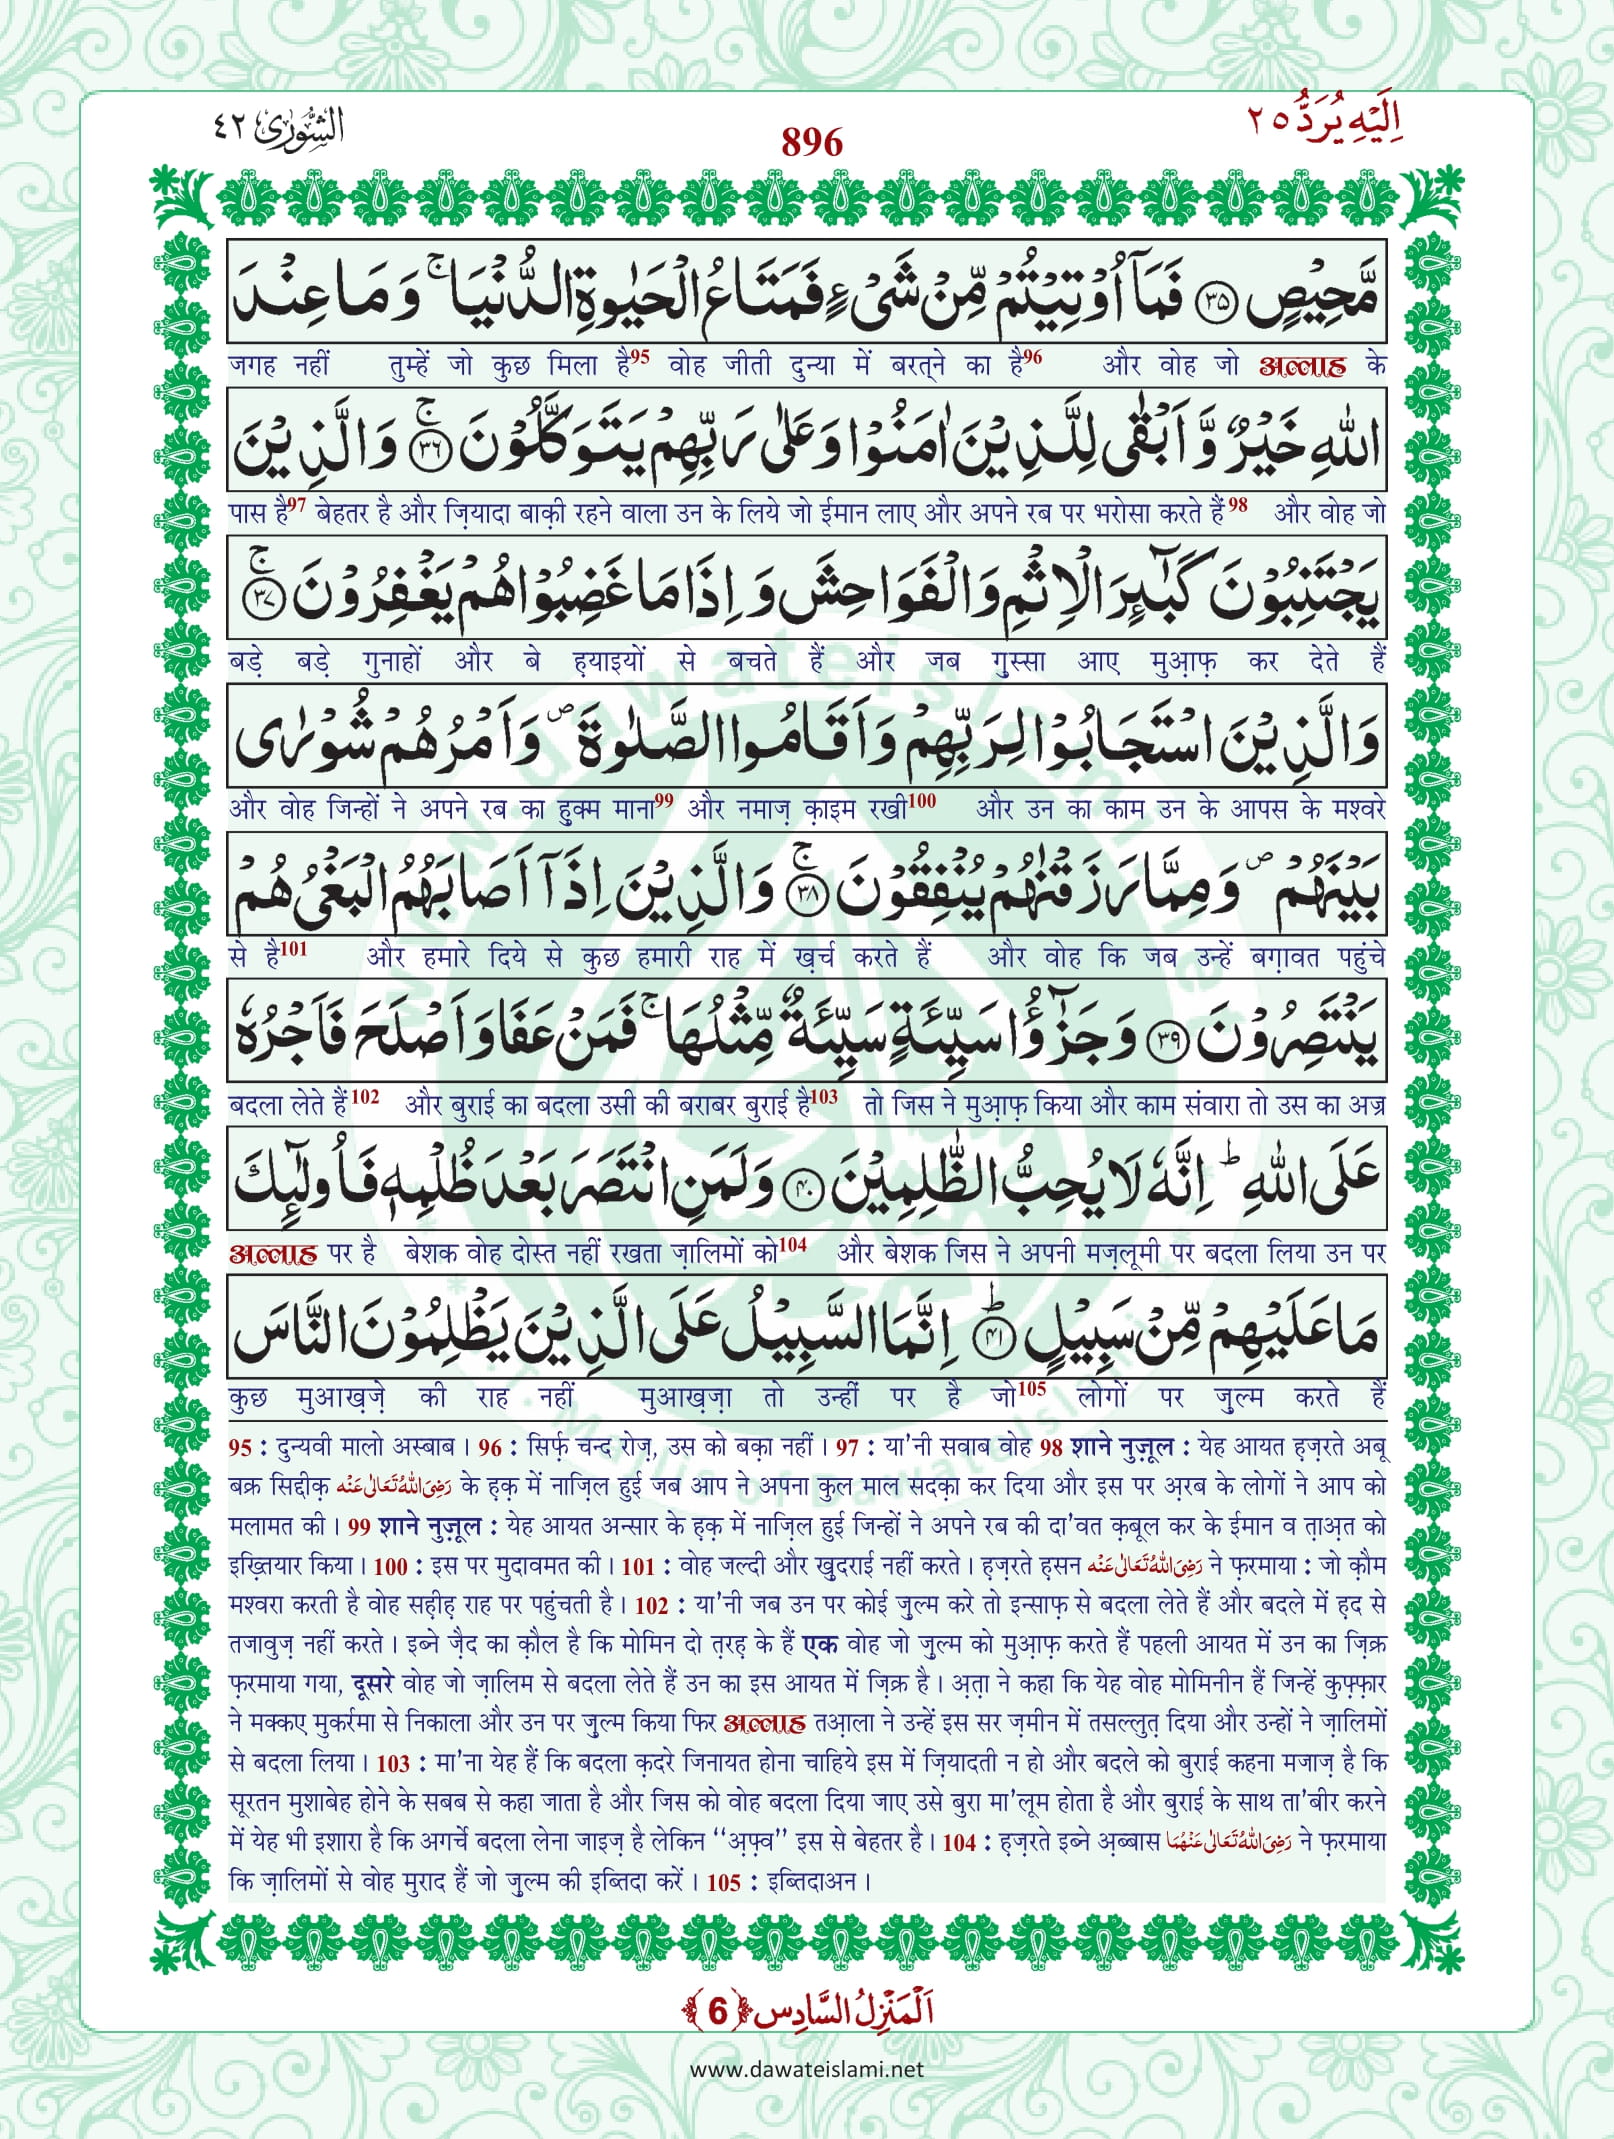 اِلَيْهِ يُرَدُّ ٢٥
896
الشُّوْرٰى ٤٢
مَّحِيْصٍ ﴿۳۵﴾ فَمَاۤ اُوْتِيْتُمْ مِّنْ شَيْءٍ فَمَتَاعُ الْحَيٰوةِ الدُّنْيَا ۚ وَ مَا عِنْدَ
जगह नहीं तुम्हें जो कुछ मिला है95 वोह जीती दुन्या में बरत्ने का है96 और वोह जो अल्लाह के
اللّٰهِ خَيْرٌ وَّ اَبْقٰى لِلَّذِيْنَ اٰمَنُوْا وَ عَلٰى رَبِّهِمْ يَتَوَكَّلُوْنَ ﴿ۚ۳۶﴾ وَ الَّذِيْنَ
पास है97 बेहतर है और ज़ियादा बाक़ी रहने वाला उन के लिये जो ईमान लाए और अपने रब पर भरोसा करते हैं98 और वोह जो
يَجْتَنِبُوْنَ كَبٰٓئِرَ الْاِثْمِ وَ الْفَوَاحِشَ وَ اِذَا مَا غَضِبُوْا هُمْ يَغْفِرُوْنَ ﴿ۚ۳۷﴾
बड़े बड़े गुनाहों और बे ह़याइयों से बचते हैं और जब ग़ुस्सा आए मुआ़फ़ कर देते हैं
وَ الَّذِيْنَ اسْتَجَابُوْا لِرَبِّهِمْ وَ اَقَامُوا الصَّلٰوةَ ۪ وَ اَمْرُهُمْ شُوْرٰى
और वोह जिन्हों ने अपने रब का हु़क्म माना99 और नमाज़ क़ाइम रखी100 और उन का काम उन के आपस के मश्वरे
بَيْنَهُمْ ۪ وَ مِمَّا رَزَقْنٰهُمْ يُنْفِقُوْنَ ﴿ۚ۳۸﴾ وَ الَّذِيْنَ اِذَاۤ اَصَابَهُمُ الْبَغْيُ هُمْ
से है101 और हमारे दिये से कुछ हमारी राह में ख़र्च करते हैं और वोह कि जब उन्हें बग़ावत पहुंचे
يَنْتَصِرُوْنَ ﴿۳۹﴾ وَ جَزٰٓؤُا سَيِّئَةٍ سَيِّئَةٌ مِّثْلُهَا ۚ فَمَنْ عَفَا وَ اَصْلَحَ فَاَجْرُهٗ
बदला लेते हैं102 और बुराई का बदला उसी की बराबर बुराई है103 तो जिस ने मुआ़फ़ किया और काम संवारा तो उस का अज्र
عَلَى اللّٰهِ ؕ اِنَّهٗ لَا يُحِبُّ الظّٰلِمِيْنَ ﴿۴۰﴾ وَ لَمَنِ انْتَصَرَ بَعْدَ ظُلْمِهٖ فَاُولٰٓئِكَ
अल्लाह पर है बेशक वोह दोस्त नहीं रखता ज़ालिमों को104 और बेशक जिस ने अपनी मज़्लूमी पर बदला लिया उन पर
مَا عَلَيْهِمْ مِّنْ سَبِيْلٍ ﴿ؕ۴۱﴾ اِنَّمَا السَّبِيْلُ عَلَى الَّذِيْنَ يَظْلِمُوْنَ النَّاسَ
कुछ मुआख़ज़े की राह नहीं मुआख़ज़ा तो उन्हीं पर है जो105 लोगों पर ज़ुल्म करते हैं
95 : दुन्यवी मालो अस्बाब । 96 : सिर्फ़ चन्द रोज़, उस को बक़ा नहीं । 97 : या'नी सवाब वोह 98 शाने नुज़ूल : येह आयत ह़ज़रते अबू
बक्र सिद्दीक़ رَضِیَ اللّٰہُ تَعَالٰی عَنْہ के ह़क़ में नाज़िल हुई जब आप ने अपना कुल माल सदक़ा कर दिया और इस पर अ़रब के लोगों ने आप को
मलामत की । 99 शाने नुज़ूल : येह आयत अन्सार के ह़क़ में नाज़िल हुई जिन्हों ने अपने रब की दा'वत क़बूल कर के ईमान व त़ाअ़त को
इख़्तियार किया । 100 : इस पर मुदावमत की । 101 : वोह जल्दी और ख़ुदराई नहीं करते । ह़ज़रते ह़सन رَضِیَ اللّٰہُ تَعَالٰی عَنْہ ने फ़रमाया : जो क़ौम
मश्वरा करती है वोह सह़ीह़ राह पर पहुंचती है । 102 : या'नी जब उन पर कोई ज़ुल्म करे तो इन्साफ़ से बदला लेते हैं और बदले में ह़द से
तजावुज़ नहीं करते । इब्ने ज़ैद का क़ौल है कि मोमिन दो त़रह़ के हैं एक वोह जो ज़ुल्म को मुआ़फ़ करते हैं पहली आयत में उन का ज़िक्र
फ़रमाया गया, दूसरे वोह जो ज़ालिम से बदला लेते हैं उन का इस आयत में ज़िक्र है । अ़त़ा ने कहा कि येह वोह मोमिनीन हैं जिन्हें कुफ़्फ़ार
ने मक्कए मुकर्रमा से निकाला और उन पर ज़ुल्म किया फिर अल्लाह तआ़ला ने उन्हें इस सर ज़मीन में तसल्लुत़ दिया और उन्हों ने ज़ालिमों
से बदला लिया । 103 : मा'ना येह हैं कि बदला क़दरे जिनायत होना चाहिये इस में ज़ियादती न हो और बदले को बुराई कहना मजाज़ है कि
सूरतन मुशाबेह होने के सबब से कहा जाता है और जिस को वोह बदला दिया जाए उसे बुरा मा'लूम होता है और बुराई के साथ ता'बीर करने
में येह भी इशारा है कि अगर्चे बदला लेना जाइज़ है लेकिन ‘‘अ़फ़्व’’ इस से बेहतर है । 104 : ह़ज़रते इब्ने अ़ब्बास رَضِیَ اللّٰہُ تَعَالٰی عَنْہُمَا ने फ़रमाया
कि ज़ालिमों से वोह मुराद हैं जो ज़ुल्म की इब्तिदा करें । 105 : इब्तिदाअन ।
اَلْمَنْزِلُ السَّادِس ﴿6﴾
www.dawateislami.net